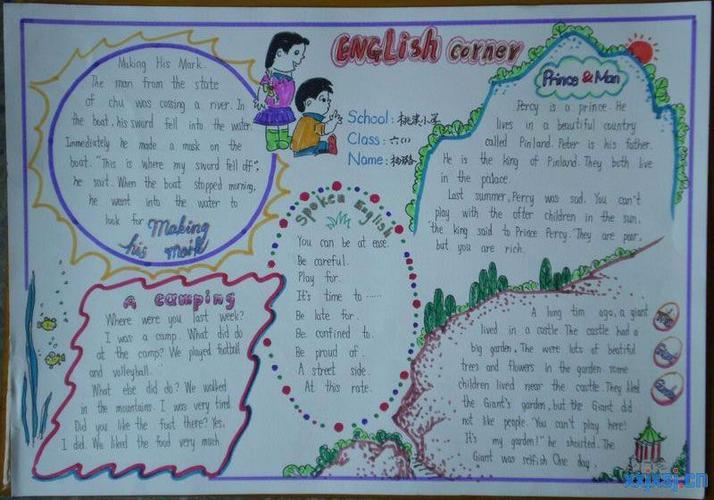 ENGLish corner
School: 桃溪小学
Class: 六(1)
Name:
Making His Mark.
The man from the state
of chu was cossing a river. In
the boat, his sword fell into the water.
Immediately he made a mask on the
boat. "This is where my sword fell off",
he sait. When the boat stopped morning,
he want into the water to
look for
Making
his mark
Prince & Man
Percy is a prince. He
lives in a beautiful country
called Pinland. Peter is his father.
He is the king of Pinland. They both live
in the palace.
Last summer, Perry was sad. You can't
play with the ofter children in the sun.
the king said to Prince Percy. They are poor,
but you are rich.
Spoken English
You can be at ease.
Be careful.
Play for.
It's time to ......
Be late for.
Be confined to.
Be proud of.
A street side.
At this rate.
A camping
Where were you last week?
I was a camp. What did do
at the camp? We played futball
and volleyball.
What else did do? We walked
in the mountains. I was very tired
Did you like the foot there? Yes,
I did. We liked the food very much.
A lung tim ago, a giant
lived in a castle The castle had a
big garden. The were lots of beatiful
trees and flowers in the garden. some
children lived near the castle. They liked
the Giant's garden, but the Giant did
not like people. "You can't play here!
It's my garden!" he shouted. The
Giant was selfish One day,
xxjxsj.cn